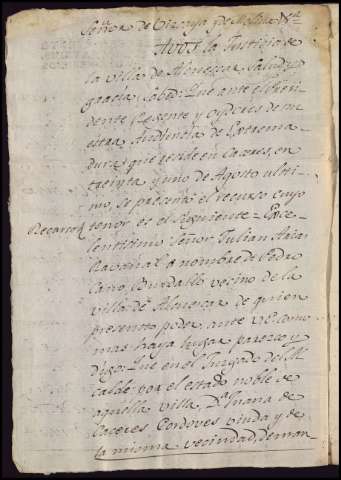 Señor de Vizcaya y de Molina &.ª
A vos la Justicia de
la villa de Almenzar, Salud y
gracia; Sabed: Que ante el Presi-
dente Regente y Oydores de nu-
estra Audiencia de Extrema-
dura, que reside en Caceres, en
treinta y uno de Agosto ulti-
mo, se presentó el recurso cuyo
Recurso tenor es el siguiente = Exce-
lentisimo Señor Julian Arias
Ravanal à nombre de Pedro
Cano Burdallo vecino de la
villa de Almenzar, de quien
presento poder, ante V.E. como
mas haya lugar parezco y
digo: Que en el Juzgado del Al-
calde por el estado noble de
aquella villa, D.ª Juana de
Caceres Cordoves viuda y de
la misma vecindad, deman-